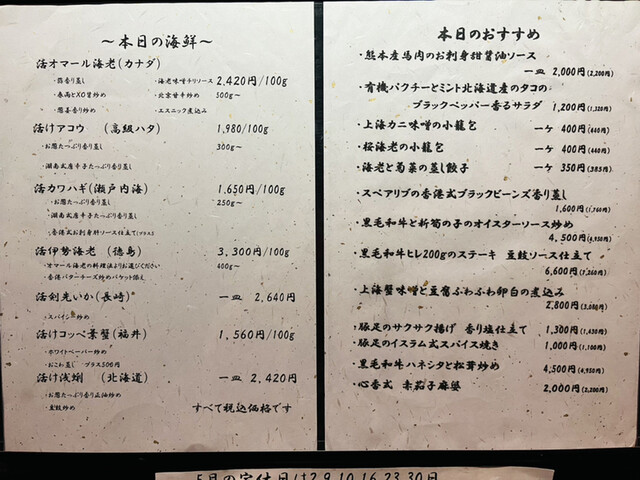 ～本日の海鮮～
活オマール海老(カナダ)
・葱香り蒸し ・海老味噌チリソース 2,420円/100g
・春雨とXO醤炒め ・北京甘辛炒め 500g～
・葱姜香り炒め ・エスニック煮込み
活けアコウ (高級ハタ) 1,980/100g
・お葱たっぷり香り蒸し 300g～
・湖南式唐辛子たっぷり香り蒸し
活カワハギ(瀬戸内海) 1,650円/100g
・お葱たっぷり香り蒸し 250g～
・湖南式唐辛子たっぷり香り蒸し
・香港式お刺身肝ソース仕立て(プラス)
活伊勢海老 (徳島) 3,300円/100g
・オマール海老の料理法よりお選びください 400g～
・香港バターチーズ炒めバケット添え
活剣先いか(長崎) 一皿 2,640円
・スパイシー炒め
活けコッペ葉蟹(福井) 1,560円/100g
・ホワイトペーパー炒め
・おこわ蒸し プラス500円
活け浅蜊 (北海道) 一皿 2,420円
・お葱たっぷり香り正油炒め
・豆鼓炒め すべて税込価格です
本日のおすすめ
・熊本産馬肉のお刺身甜醤油ソース
一皿 2,000円(2,200円)
・有機パクチーとミント北海道産のタコの
ブラックペッパー香るサラダ 1,200円(1,320円)
・上海カニ味噌の小籠包 一ヶ 400円(440円)
・桜海老の小籠包 一ヶ 400円(440円)
・海老と菊菜の蒸し餃子 一ヶ 350円(385円)
・スペアリブの香港式ブラックビーンズ香り蒸し
1,600円(1,760円)
・黒毛和牛と新筍の子のオイスターソース炒め
4,500円(4,950円)
・黒毛和牛ヒレ200gのステーキ 豆鼓ソース仕立て
6,600円(7,260円)
・上海蟹味噌と豆腐ふわふわ卵白の煮込み
2,800円(3,080円)
・豚足のサクサク揚げ 香り塩仕立て 1,300円(1,430円)
・豚足のイスラム式スパイス焼き 1,000円(1,100円)
・黒毛和牛ハネシタと松茸炒め 4,500円(4,950円)
・心香式 赤茄子麻婆 2,000円(2,200円)
5月の定休日は2.9.10.16.23.30日